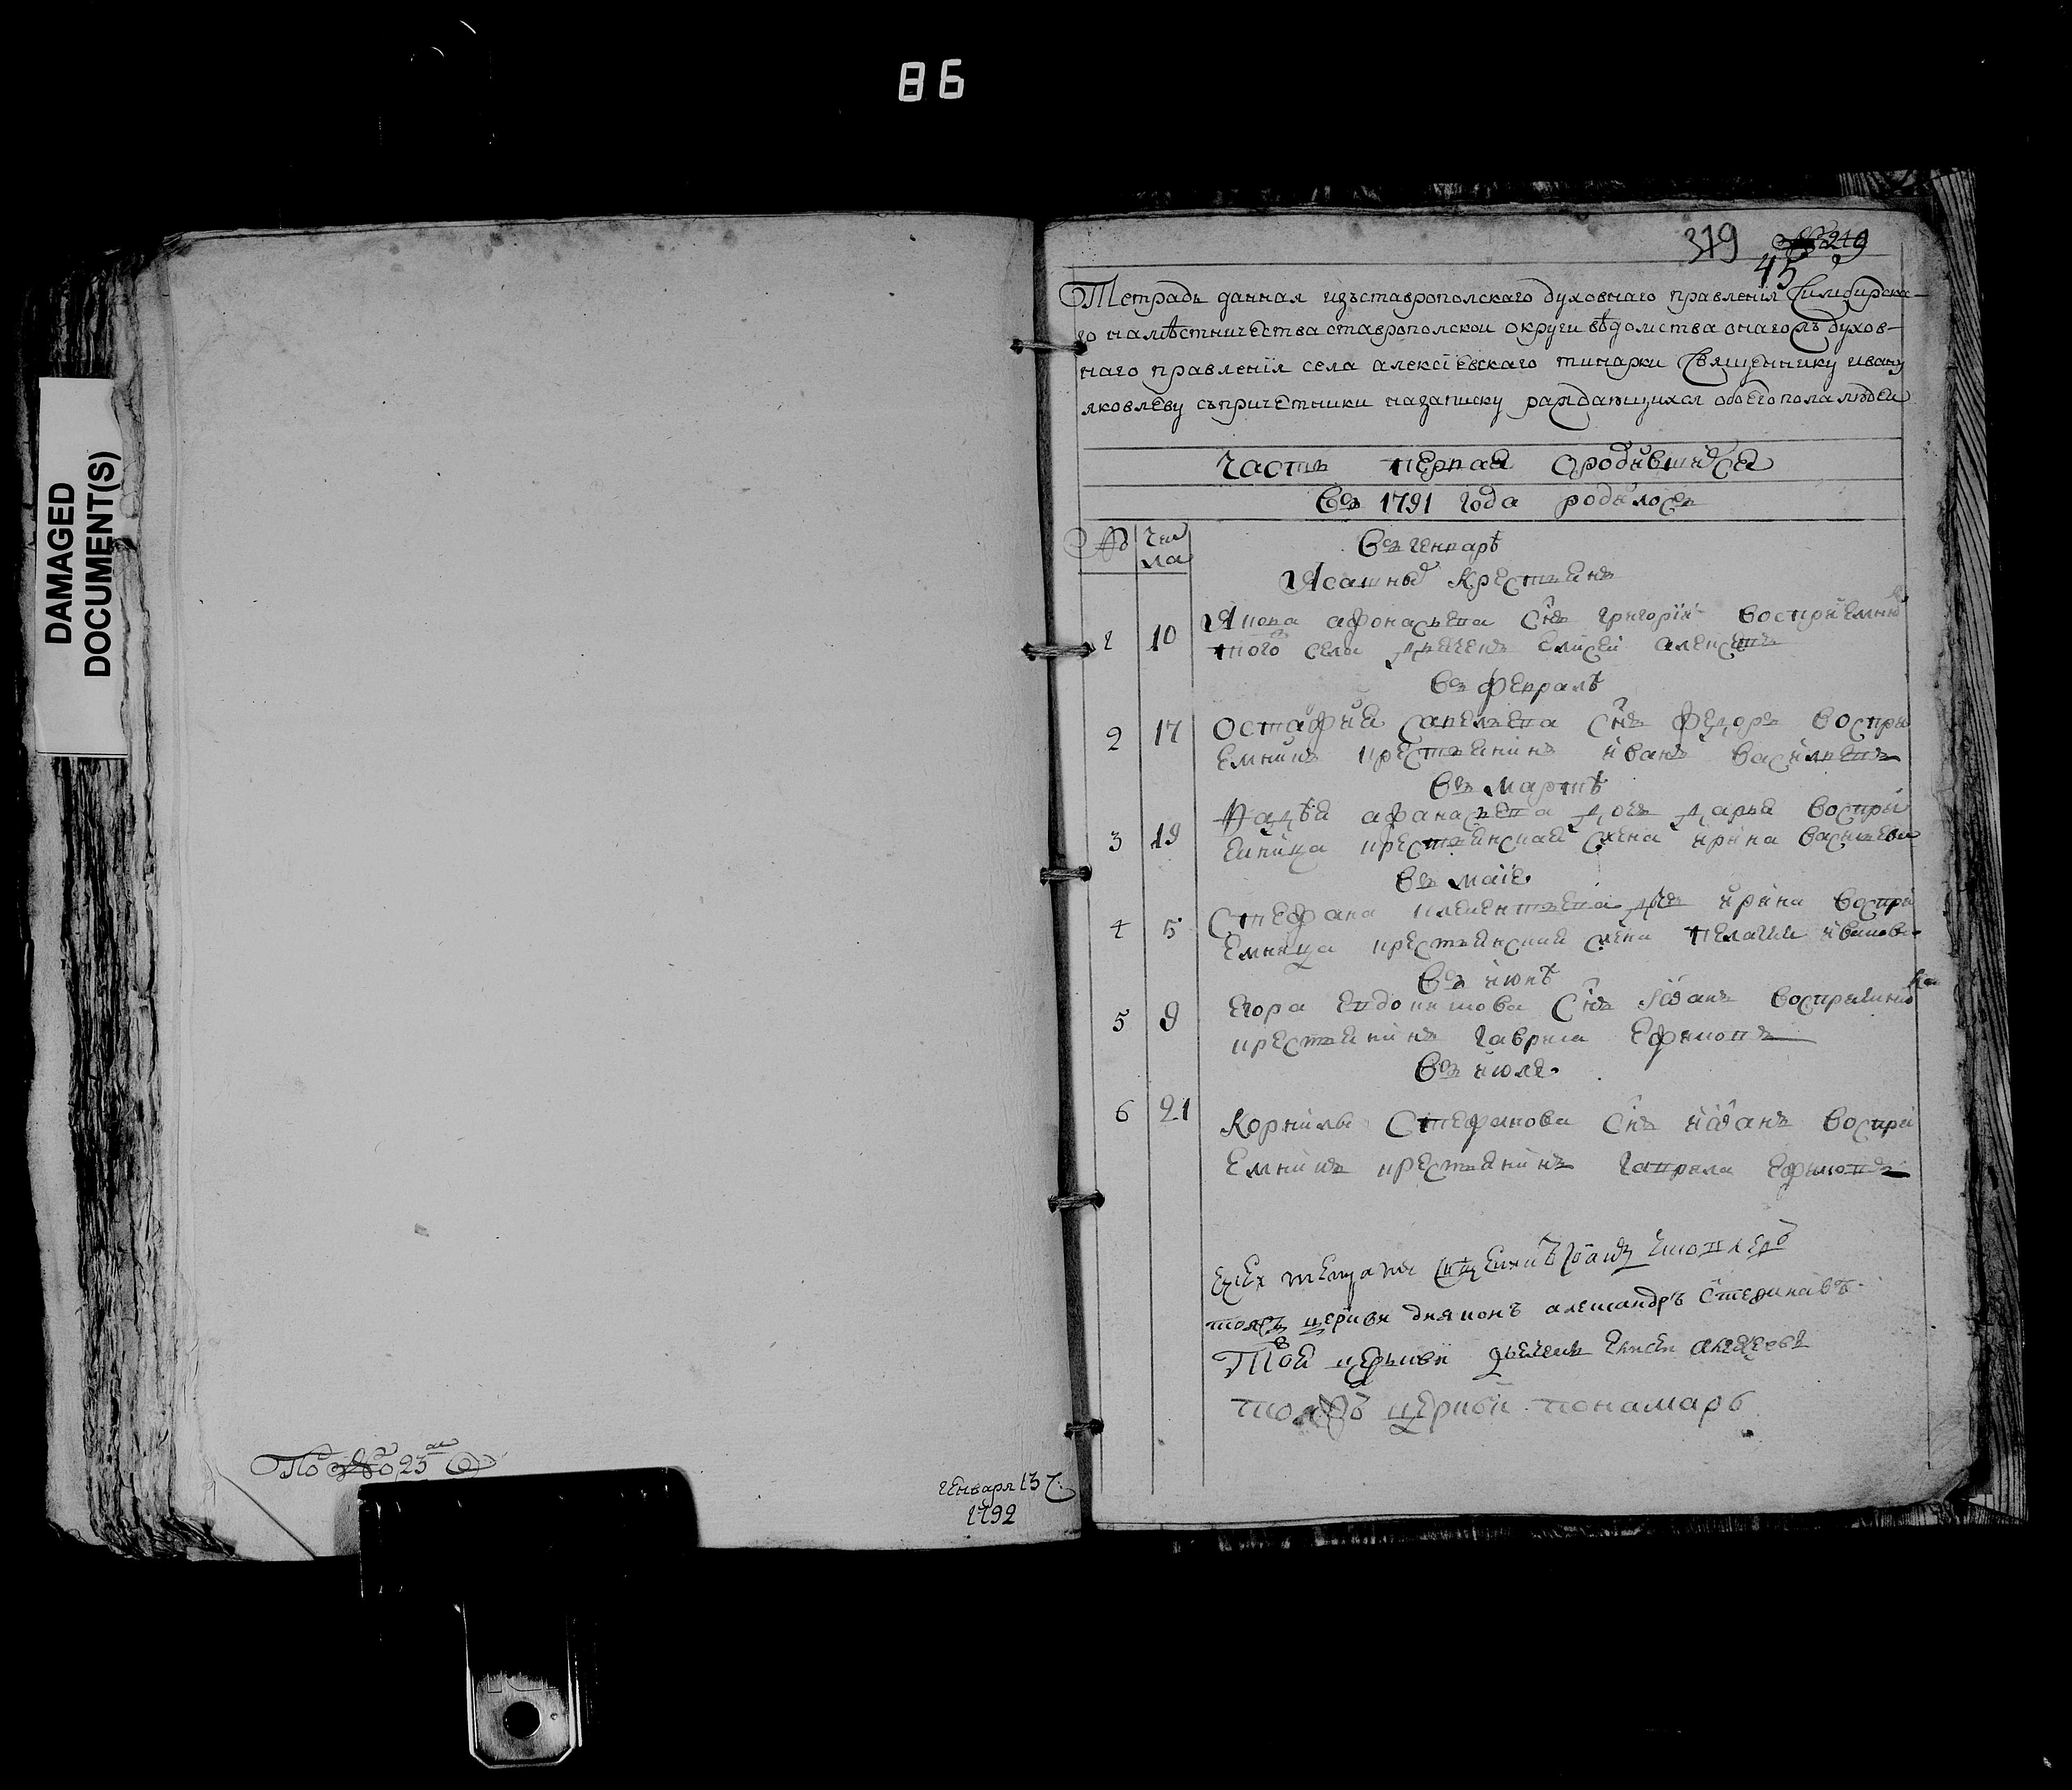 86
DAMAGED
DOCUMENT(S)
По № 23
Генваря 13 ч:
1792
319 № 219
45
Тетрадь данная изъставрополскаго духовнаго правленія Симбирска-
го намѣстничества ставрополскои округи вѣдомства онагожъ духов-
наго правленія села алексіевскаго тинарки Священнику ивану
яковлеву съпричетники назаписку раждающихся обоего пола людеи
Часть первая ородившихся
Въ 1791 года родилось
№ Чис
ла
Въ генваре
Ясашныхъ крестьянъ
1 10 Якова афонасьева Снъ григориӣ восприемникъ
того села дьячекъ елисеӣ алексевъ
Въ февралѣ
2 17 Остафия савельева Снъ федоръ воспри
емникъ крестьянинъ иванъ васильевъ
Въ мартѣ
3 19 афанасьева дочь дарья воспри
емница крестьянская жена ирина васильева
Въ маїе
4 5 Стефана клементьева дочь ирина воспри
емница крестьянская жена пелагия иванова
Въ июнѣ
5 9 Егора евдокимова Снъ иванъ восприемникъ
крестьянинъ гаврила ефимовъ
Въ июле
6 21 Корнилы Стефанова Снъ иванъ воспри
емникъ крестьянинъ гаврила ефимовъ
тояжъ церкви диаконъ александръ Степанавъ
Тои церькви дьячекъ елисеи алексеевъ
тояжъ церкви понамарь